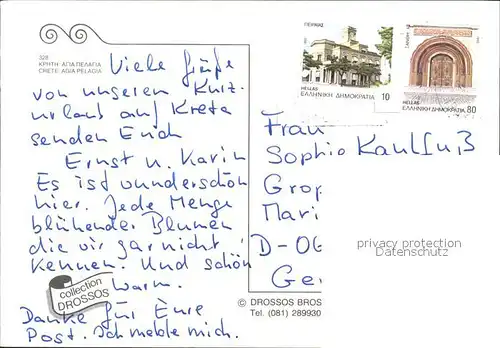 328
ΚΡΗΤΗ ΑΓΙΑ ΠΕΛΑΓΙΑ
CRETE AGIA PELAGIA
Viele Grüße
von unseren Kurz-
urlaub auf Kreta
senden Euch
Ernst u. Karin
Es ist wunderschön
hier. Jede Menge
blühender Blumen
die wir gar nicht
kennen. Und schön
warm.
Danke für Eure
Post. Ich melde mich.
collection
DROSSOS
ΠΕΙΡΑΙΑΣ
HELLAS
ΕΛΛΗΝΙΚΗ ΔΗΜΟΚΡΑΤΙΑ 10
HELLAS
ΕΛΛΗΝΙΚΗ ΔΗΜΟΚΡΑΤΙΑ 80
Frau
Sophie Kaulfuß
Grop
Mari
D-06
Ger
privacy protection
Datenschutz
© DROSSOS BROS
Tel. (081) 289930